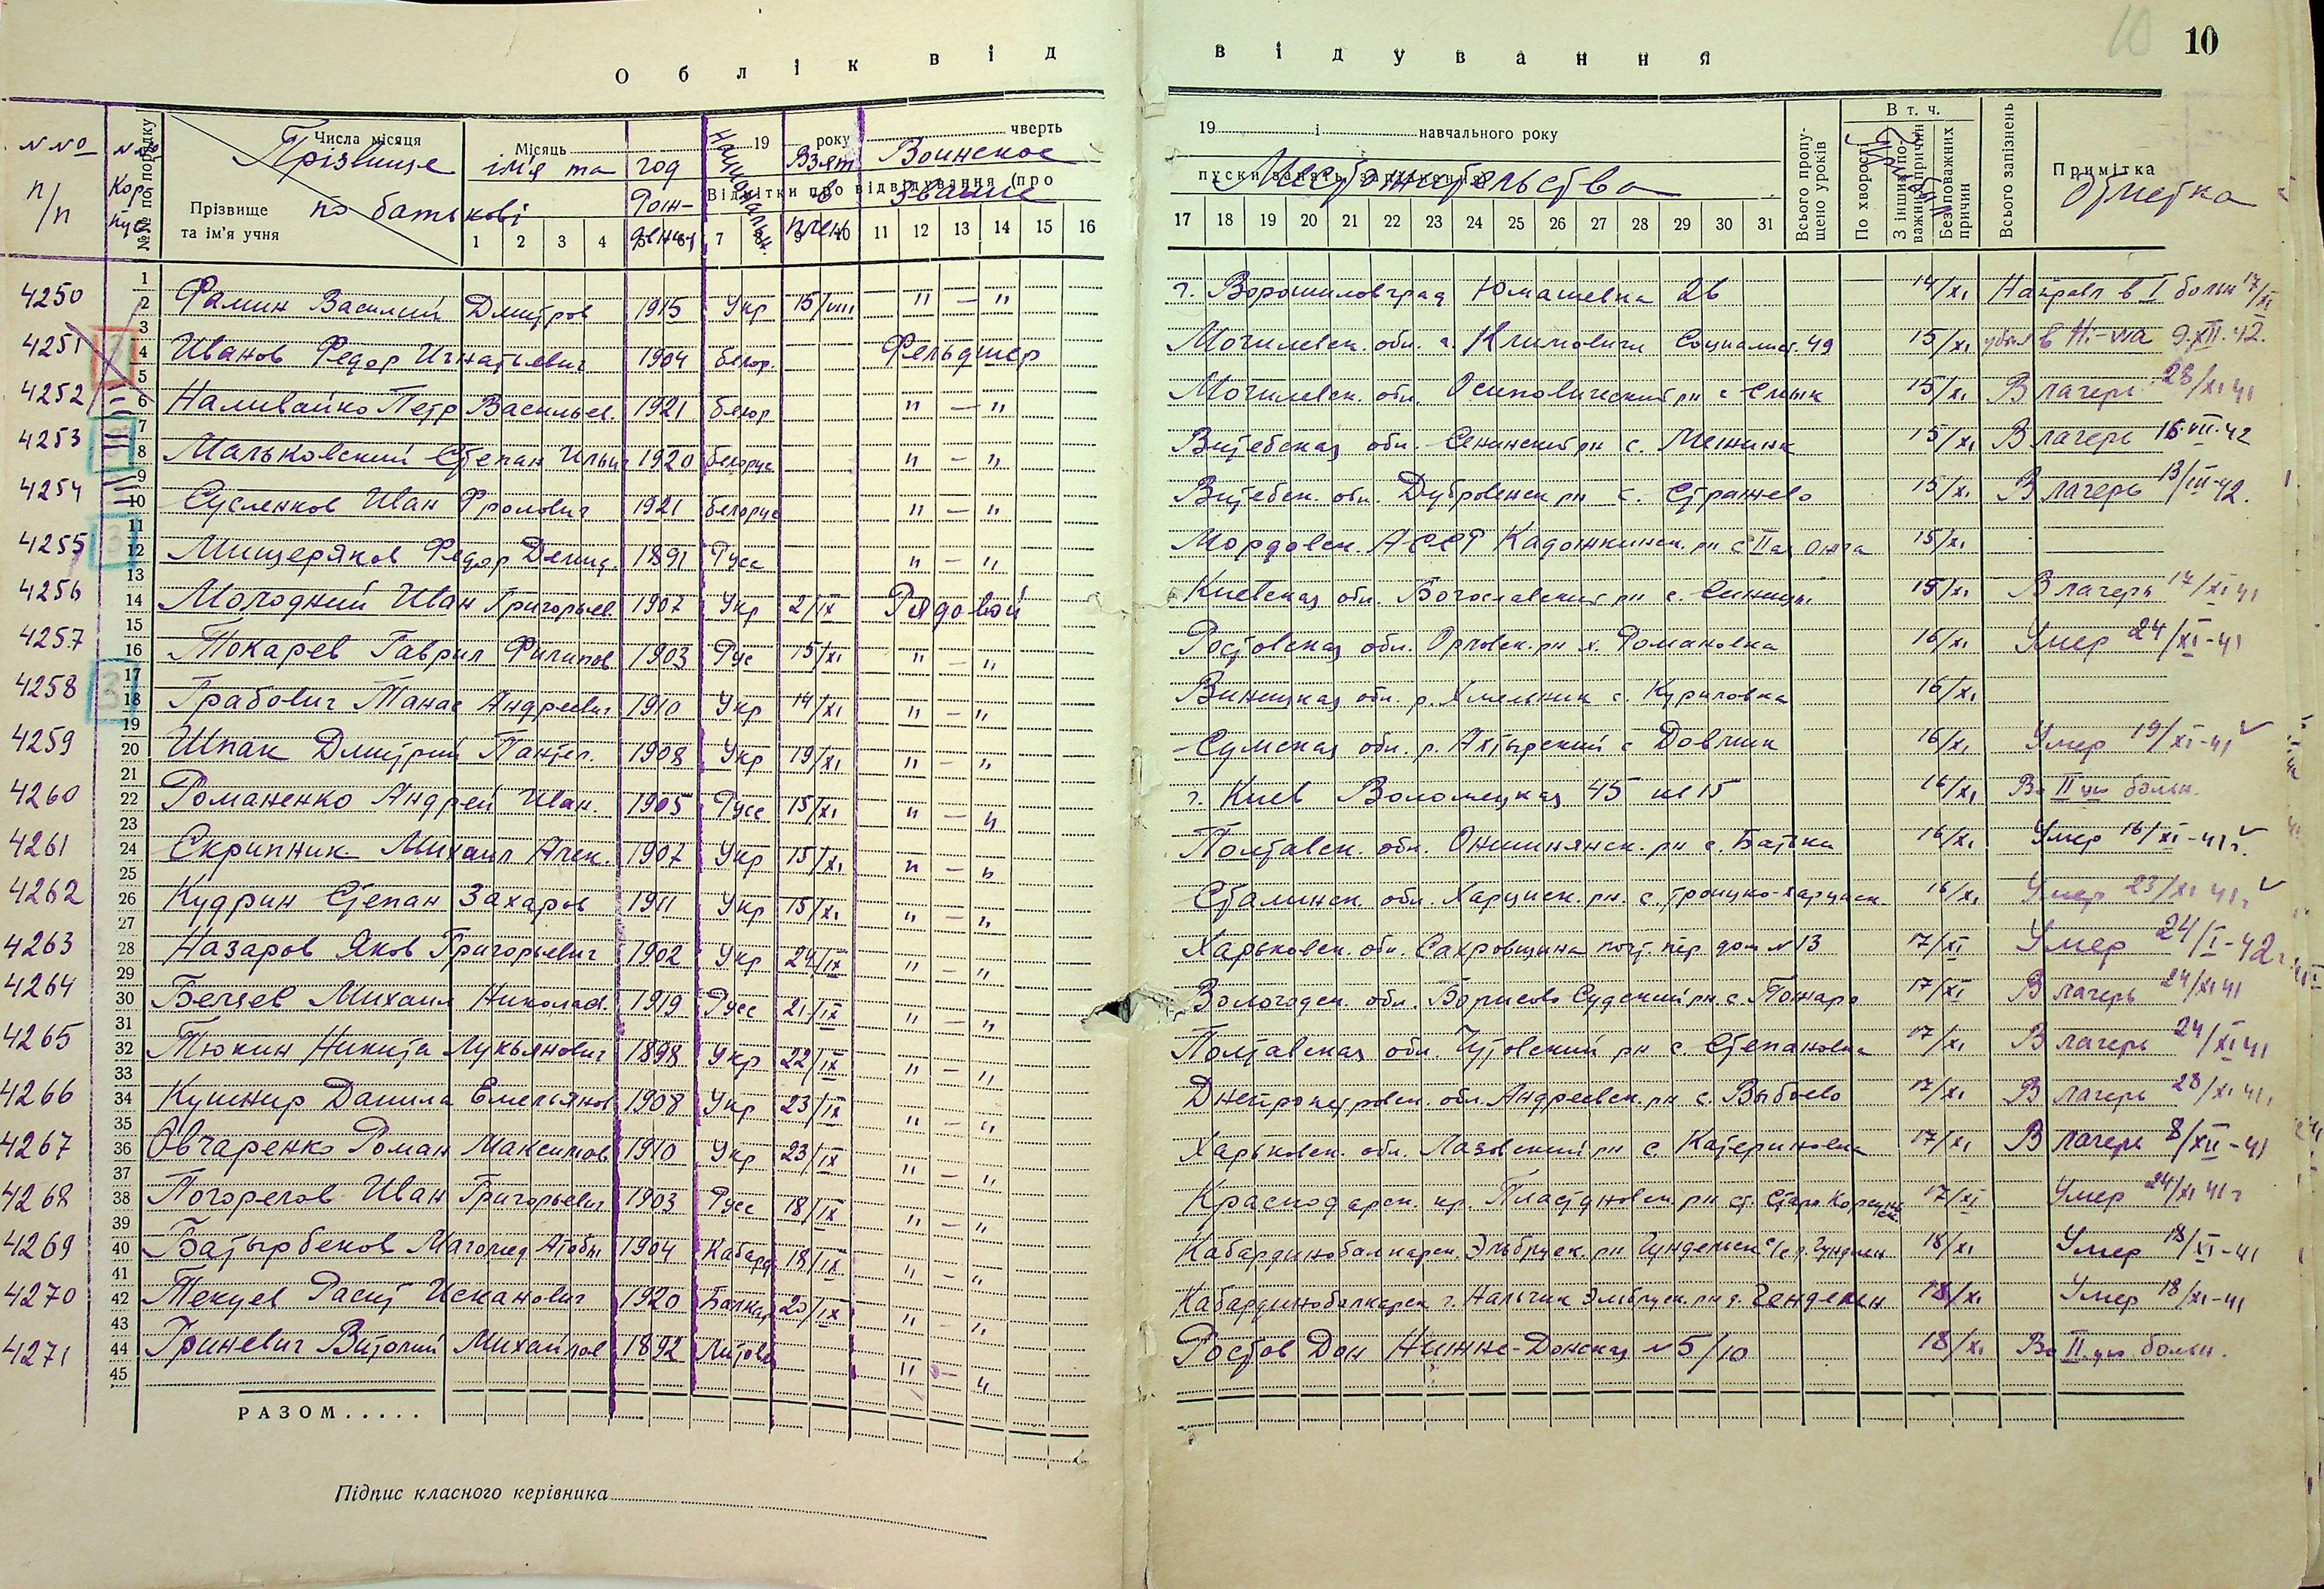 10
10
О б л і к в і д в і д у в а н н я
N No п/п
N No Кор пус
№№ по порядку
Числа місяця
Прізвище
Місяць
ім'я та
по батькові
Прізвище та ім'я учня
год Рож- дения
Национальн.
19 року чверть
Взят в плен
Воинское звание
Відмітки про відвідування (про
1 2 3 4 5 6 7 8 9 10 11 12 13 14 15 16
19 і навчального року
пуски занять, запізнення)
Местожительства
17 18 19 20 21 22 23 24 25 26 27 28 29 30 31
Всього пропу- щено уроків
В т. ч.
По хворості
З інших по- важних причин
Без поважних причин
Всього запізнень
Примітка
Отметка
4250 Фамин Василий Дмитров 1915 Укр 15/VIII " — " г. Ворошиловград Юмашевка 26 14/XI Направл в I больн 17/XI
4251 Иванов Федор Игнатьевич 1904 белор. Фельдшер Могилевск. обл. г. Климовичи Социалист. 49 15/XI убыл в 9.XII.42.
4252 Наливайко Петр Васильев. 1921 белор " — " Могилевск. обл. Осиповический рн с 15/XI В лагерь 28/XI 41
4253 Мальковский Степан Ильич 1920 белорус " — " Витебская обл. Сенинский рн с. 15/XI В лагерь 16 VII-42
4254 Сусленков Иван Фролович 1921 белорус " — " Витебск. обл. Дубровенск рн с. Стражево 15/XI В лагерь 13/III-42.
4255 3 Мищеряков Федор Демид. 1891 Русс " — " Мордовск. АССР Кадошкинск. рн с 15/XI
4256 Молодний Иван Григорьев. 1907 Укр 2/IX Рядовой Киевская обл. Богославский рн с. Синицы 15/XI В лагерь 17/XI 41
4257 Токарев Гаврил Филипов 1903 Рус 15/XI " — " Ростовская обл. Орловск. рн х. Романовка 16/XI Умер 24/XI-41
4258 3 Грабович Танас Андреевич 1910 Укр 14/XI " — " Виницкая обл. р. Хмельник с. Куриловка 16/XI
4259 Шпак Дмитрий Пантел. 1908 Укр 19/XI " — " Сумская обл. р. Ахтырский с Довжик 16/XI Умер 19/XI-41
4260 Романенко Андрей Иван. 1905 Русс 15/XI " — " г. Киев 45 кв 15 16/XI Во II ую больн.
4261 Скрипник Михаил Алек. 1907 Укр 15/XI " — " Полтавск. обл. Опишнянск. рн с. Батьки 16/XI Умер 16/XI-41г.
4262 Кудрин Степан Захаров 1911 Укр 15/XI " — " Сталинск обл. Харцизск. рн. с. Троицко-Харцизск 16/XI Умер 23/XI 41г
4263 Назаров Яков Григорьевич 1902 Укр 24/IX " — " Харьковск. обл. Сахровщина пер дом N 13 17/XI Умер 24/I-42г
4264 Михаил Николаев. 1919 Русс 21/IX " — " Вологодск. обл. Борисово Судский рн с. Пожара 17/XI В лагерь 24/XI 41
4265 Тюкин Никита Лукьянович 1898 Укр 22/IX " — " Полтавская обл. Чутовский рн с. Степановка 17/XI В лагерь 24/XI 41
4266 Кушнир Данила Емельянов 1908 Укр 23/IX " — " Днепропетровск. обл. Андреевск. рн с. 17/XI В лагерь 28/XI 41
4267 Овчаренко Роман Максимов 1910 Укр 23/IX " — " Харьковск. обл. Лазовский рн с. Катериновка 17/XI В лагерь 8/XII-41
4268 Погорелов Иван Григорьевич 1903 Русс 18/IX " — " Краснодарск. кр. Пластуновск. рн ст. Старо Корсунск. 17/XI Умер 24/XI 41г
4269 Батырбеков Магомед 1904 Кабард 18/IX " — " Кабардинобалкарск. Эльбруск. рн. 18/XI Умер 18/XI-41
4270 Текуев Расит Исканович 1920 Балкар 20/IX " — " Кабардинобалкарск г. Нальчик Эльбруск. рн д. Генделен 18/XI Умер 18/XI-41
4271 Гриневич Витолий Михайлов 1892 Литовец " — " Ростов Дон Нижне-Донская N 5/10 18/XI Во II ую больн.
РАЗОМ.....
Підпис класного керівника